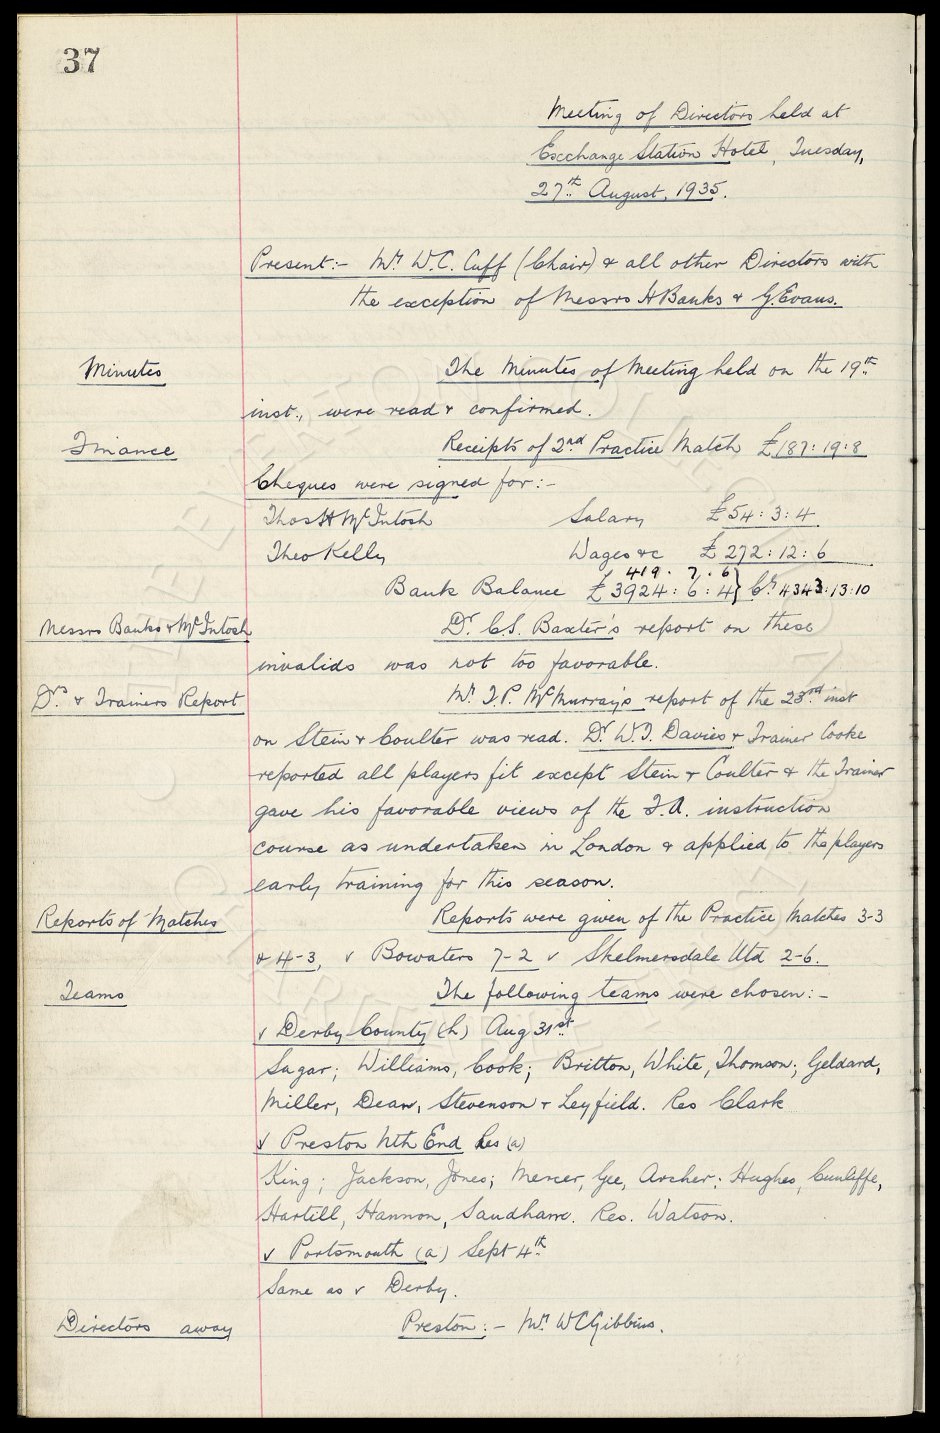 37
Meeting of Directors held at
Exchange Station Hotel, Tuesday,
27th August, 1935.
Present:- Mr. W.C. Cuff (Chair) & all other Directors with
the exception of Messrs H Banks & G. Evans.
Minutes
The Minutes of Meeting held on the 19th
inst., were read & confirmed.
Finance
Receipts of 2nd Practice Match £187:19:8
Cheques were signed for:-
Thos H McIntosh Salary £54:3:4
Theo Kelly Wages &c £272:12:6
419.7.6
Bank Balance £3924:6:4} Cr 4343:13:10
Messrs Banks & McIntosh
Dr. C.S. Baxter's report on these
invalids was not too favorable.
Drs. & Trainers Report
Mr. T.P. McMurray's report of the 23rd inst
on Stein & Coulter was read. Dr. W.T. Davies & Trainer Cooke
reported all players fit except Stein & Coulter & the Trainer
gave his favorable views of the F.A. instruction
course as undertaken in London & applied to the players
early training for this season.
Reports of Matches
Reports were given of the Practice Matches 3-3
& 4-3, v Bowaters 7-2 v Skelmersdale Utd 2-6.
Teams
The following teams were chosen:-
v Derby County (h) Aug 31st.
Sagar; Williams, Cook; Britton, White, Thomson; Geldard,
Miller, Dean, Stevenson & Leyfield. Res Clark
v Preston Nth End Res (a)
King; Jackson, Jones; Mercer, Gee, Archer; Hughes, Cunliffe,
Hartill, Hannon, Sandham. Res. Watson.
v Portsmouth (a) Sept 4th.
Same as v Derby.
Directors away
Preston:- Mr. W C Gibbins.